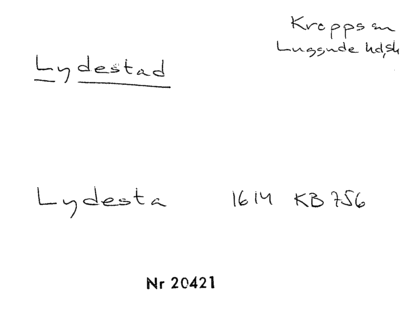 Kropps sn
Luggude hd, Sk
Lydestad
Lydesta 1614 KB 756
Nr 20421